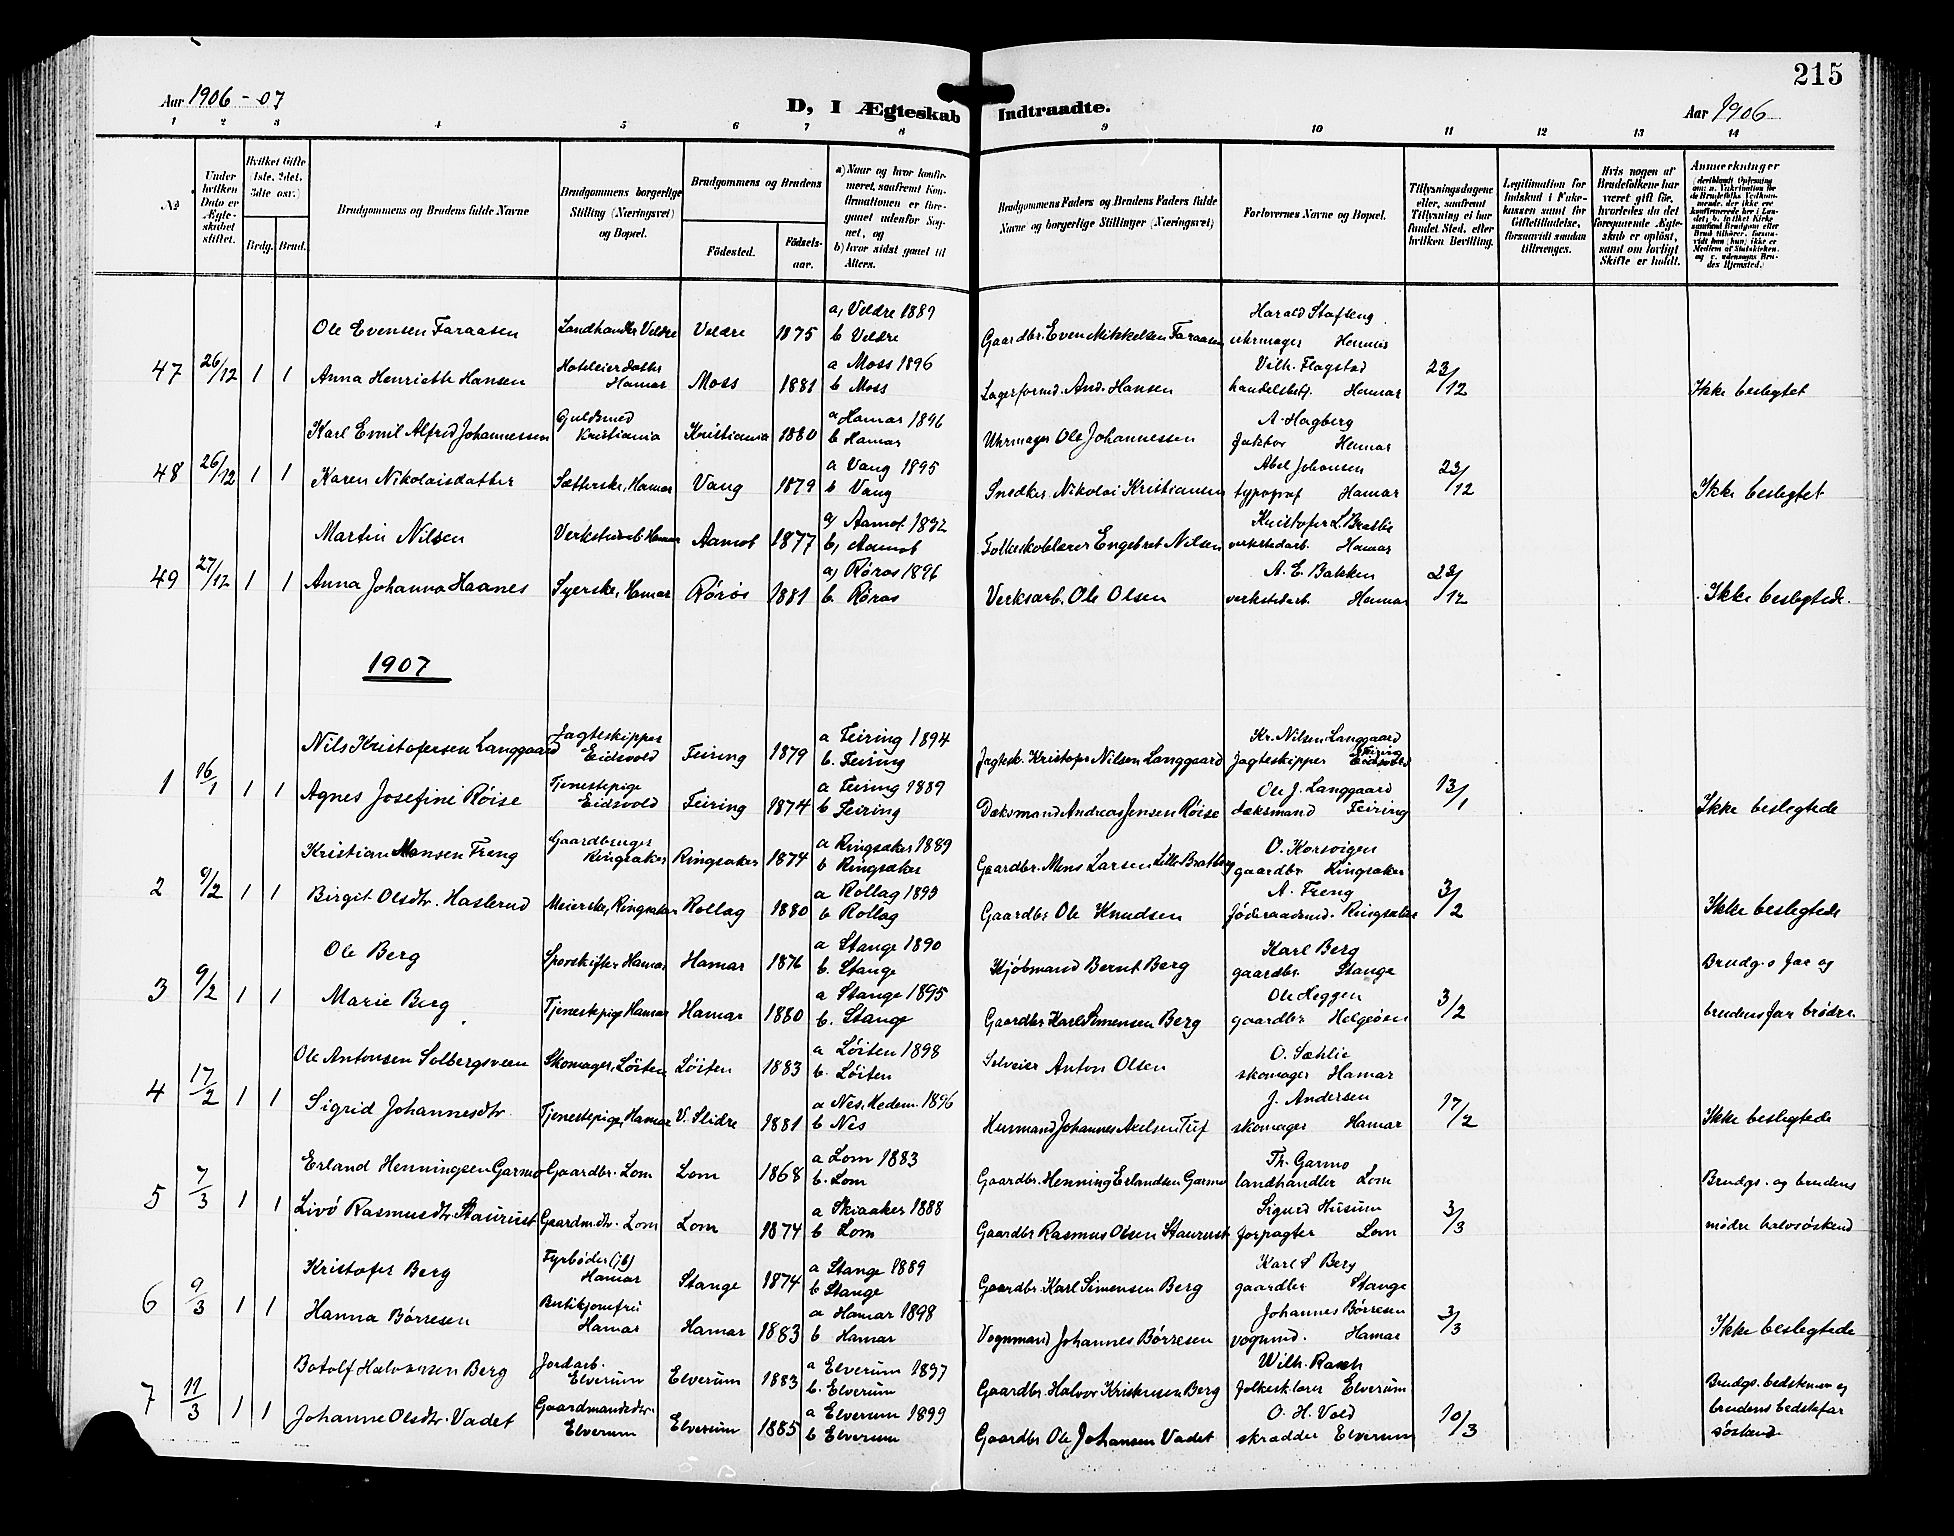 215
Aar 1906-07
D, I Ægteskab Indtraadte.
Aar 1906
1 2 3 4 5 6 7 8 9 10 11 12 13 14
No
Under hvilken Dato er Ægteskabet stiftet.
Hvilket Gifte (1ste, 2det, 3die osv.)
Brdg. Brud.
Brudgommens og Brudens fulde Navne
Brudgommens borgerlige Stilling (Næringsvei) og Bopæl.
Brudgommens og Brudens
Fødested.
Fødselsaar.
a) Naar og hvor konfirmeret, saafremt Konfirmationen er foregaaet udenfor Sognet, og
b) hvor sidst gaaet til Alters.
Brudgommens Faders og Brudens Faders fulde Navne og borgerlige Stillinger (Næringsvei)
Forlovernes Navne og Bopæl.
Tillysningsdagene eller, saafremt Tillysning ei har fundet Sted, efter hvilken Bevilling.
Legitimation for Indskud i Enkekassen samt for Giftetilladelse, forsaavidt saadan tiltrænges.
Hvis nogen af Brudefolkene har været gift før, hvorledes da det foregaaende Ægteskab er opløst, samt om lovligt Skifte er holdt.
Anmerkninger
Ole Evensen Faraasen Landhandler Veldre Veldre 1875 a, Veldre 1889 b Veldre Gaardbr. Even Mikkelsen Faraasen Harald Stafseng uhrmager Hamar
47 26/12 1 1 Anna Henriette Hansen Hoteleierdatter Hamar Moss 1881 a Moss 1896 b Moss Lagerformd. And. Hansen Vilh. Flagstad handelsbetj. Hamar 23/12 Ikke beslegtet
Karl Emil Alfred Johannessen Guldsmed Kristiania Kristiania 1880 a Hamar 1896 b Hamar Uhrmager Ole Johannessen A. Hagberg faktor Hamar
48 26/12 1 1 Karen Nikolaisdatter Sætterske, Hamar Vang 1879 a Vang 1895 b Vang Snedker Nikolai Kristiansen Abel Johansen typograf Hamar 23/12 Ikke beslegtet
Martin Nilsen Verkstedarb. Hamar Aamot 1877 a, Aamot 1892 b, Aamot Folkeskolelærer Engebret Nilsen Kristofer L. Bratlie verkstedarb. Hamar
49 27/12 1 1 Anna Johanna Haanes Syerske, Hamar Røros 1881 a, Røros 1896 b. Røros Verksarb. Ole Olsen A. E. Bakken verkstedarb. Hamar 23/12 Ikke beslegtede.
1907
Nils Kristofersen Langgaard Jagteskipper Eidsvold Feiring 1879 a Feiring 1894 b. Feiring Jagtesk. Kristofer Nilsen Langgaard Kr. Nilsen Langgaard Jagteskipper Feiring Eidsvold
1 16/1 1 1 Agnes Josefine Røise Tjenestepige Eidsvold Feiring 1874 a Feiring 1889 b Feiring Dæksmand Andreas Jensen Røise Ole J. Langgaard dæksmand Feiring 13/1 Ikke beslegtede
Kristian Monsen Freng Gaardbruger Ringsaker Ringsaker 1874 a Ringsaker 1889 b Ringsaker Gaardbr. Mons Larsen Lille Bratberg O. Korsvigen gaardbr. Ringsaker
2 9/2 1 1 Birgit Olsdtr. Haslerud Meierske, Ringsaker Rollag 1880 a Rollag 1895 b Rollag Gaardbr Ole Knudsen A. Freng føderaadsmd. Ringsaker 3/2 Ikke beslegtede
Ole Berg Sporskifter Hamar Hamar 1876 a Stange 1890 b. Stange Kjøbmand Bernt Berg Karl Berg gaardbr. Stange Brudg.s far og
3 9/2 1 1 Marie Berg Tjenestepige Hamar Hamar 1880 a Stange 1895 b. Stange Gaardbr Karl Simensen Berg Ole Heggen gaardbr Helgeøen 3/2 brudens far brødre.
Ole Antonsen Solbergsveen Skomager, Løiten Løiten 1883 a Løiten 1898 b. Løiten Selveier Anton Olsen O. Sæhlie skomager Hamar
4 17/2 1 1 Sigrid Johannesdtr. Tjenestepige, Hamar V. Slidre 1881 a Nes, Hedem. 1896 b Nes Husmand Johannes Axelsen Tuf J. Andersen skomager Hamar 17/2 Ikke beslegtede
Erland Henningsen Garmo Gaardbr. Lom Lom 1868 a Lom 1883 b. Lom Gaardbr. Henning Erlandsen Garmo Th. Garmo landhandler Lom Brudgs. og brudens
5 7/3 1 1 Livø Rasmusdtr. Staurust Gaardmdtr. Lom Lom 1874 a Skiaaker 1888 b Lom Gaardbr Rasmus Olsen Staurust Sigurd Husum forpagter Lom 3/3 mødre halvsøskend
Kristofer Berg Fyrbøder (jb) Hamar Stange 1874 a Stange 1889 b Stange Gaardbr. Karl Simensen Berg Karl S Berg gaardbr Stange
6 9/3 1 1 Hanna Børresen Butikjomfru Hamar Hamar 1883 a Hamar 1898 b Hamar Vognmand Johannes Børresen Johannes Børresen vognmd. Hamar 3/3 Ikke beslegtede
Botolf Halvorsen Berg Jordarb. Elverum Elverum 1883 a Elverum 1897 b. Elverum Gaardbr. Halvor Kristensen Berg Wilh. Rasch folkesklærer Elverum Brudgs. bedstemor og
7 11/3 1 1 Johanne Olsdtr. Vadet Gaardmandsdtr. Elverum Elverum 1885 a Elverum 1899 b Elverum Gaardbr Ole Johansen Vadet O. H. Vold skrædder Elverum 10/3 brudens bedstefar søskende